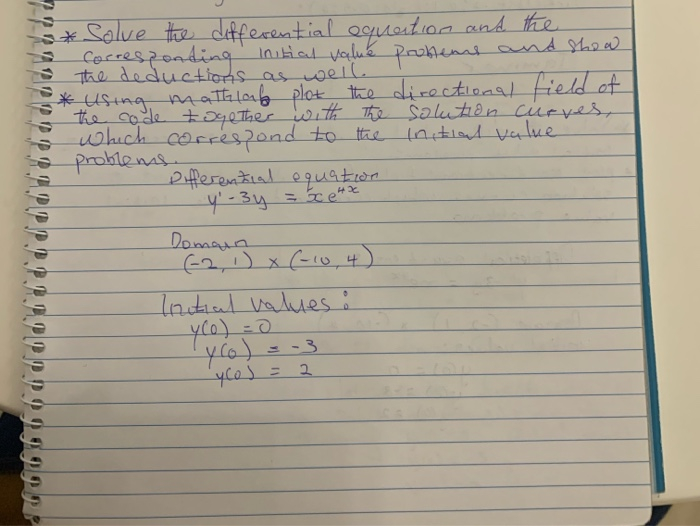 * Solve the differential equation and the
corresponding initial value problems and show
the deductions as well.
* using mathlab plot the directional field of
the code together with the solution curves,
which correspond to the initial value
problems.
Differential equation
y' - 3y = xe^{4x}
Domain
(-2, 1) x (-10, 4)
Initial values :
y(0) = 0
y(0) = -3
y(0) = 2